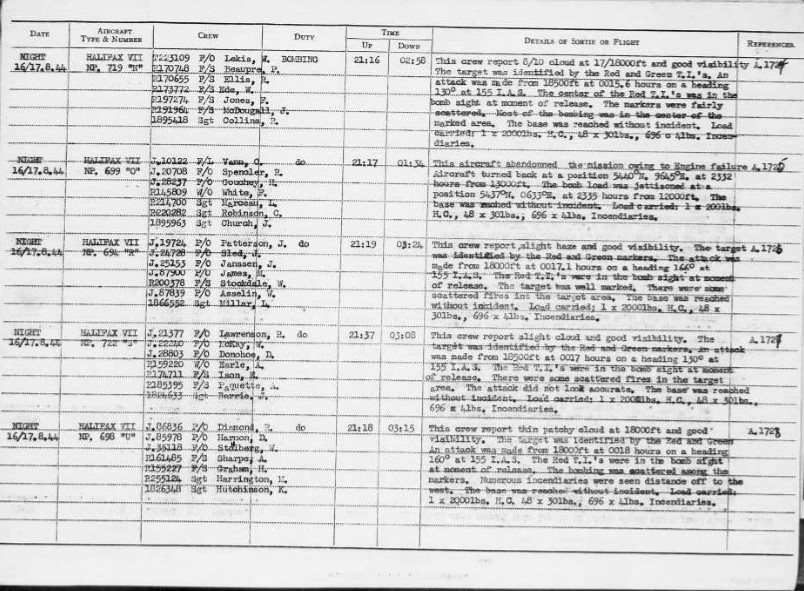 DATE AIRCRAFT TYPE & NUMBER CREW DUTY TIME UP DOWN DETAILS OF SORTIE OR FLIGHT REFERENCES
NIGHT HALIFAX VII R223109 F/O Lekis, W. BOMBING 21:16 02:58 This crew report 8/10 cloud at 17/18000ft and good visibility
16/17.8.44 NP. 719 "N" R170748 F/S Beaupre, P. The target was identified by the Red and Green T.I.'s. An
R170655 F/S Ellis, R. attack was made from 18500ft at 0015.6 hours on a heading
R173772 F/S Ede, W. 130° at 155 I.A.S. The center of the Red T.I.'s was in the
R197274 F/S Jones, F. bomb sight at moment of release. The markers were fairly
R191964 F/S McDougall, J. scattered. Most of the bombing was in the center of the
1895418 Sgt Collins, R. marked area. The base was reached without incident. Load
carried; 1 x 2000lbs. H.C., 48 x 30lbs., 696 c 4lbs. Incen-
diaries.
NIGHT HALIFAX VII J.10122 F/L Vann, C. do 21:17 01:34 This aircraft abandonned the mission owing to Engine failure
16/17.8.44 NP. 699 "O" J.20708 F/O Spencler, R. Aircraft turned back at a position 5440°N, 9645°E, at 2332
J.28237 F/O Gouchey, H. hours from 13000ft. The bomb load was jettisoned at a
R145809 W/O White, F. position 5437°N, 0633°E, at 2335 hours from 12000ft. The
R214700 Sgt Marceau, L. base was reached without incident. Load carried; 1 x 2000lbs.
R220282 Sgt Robinson, C. H.C., 48 x 30lbs.; 696 x 4lbs. Incendiaries.
1895963 Sgt Church, J.
NIGHT HALIFAX VII J.19724 F/O Patterson, J. do 21:19 03:24 This crew report slight haze and good visibility. The target
16/17.8.44 NP. 694 "R" J.24728 F/O Sled, J. was identified by the Red and Green markers. The attack was
J.25153 F/O Janssen, J. made from 18000ft at 0017.1 hours on a heading 166° at
J.87900 P/O James, M. 159 I.A.S. The Red T.I.'s were in the bomb sight at moment
R200378 F/S Stockdale, W. of release. The target was well marked. There were some
J.87839 P/O Asselin, W. scattered fires int the target area. The base was reached
1866552 Sgt Millar, L. without incident. Load carried; 1 x 2000lbs. H.C., 48 x
30lbs., 696 x 4lbs. Incendiaries.
NIGHT HALIFAX VII J.21377 F/O Lawrenson, R. do 21:37 03:08 This crew report slight cloud and good visibility. The
16/17.8.44 NP. 722 "S" J.22240 F/O McKay, W. target was identified by the Red and Green markers. An attack
J.28803 F/O Donohoe, D. was made from 18500ft at 0017 hours on a heading 130° at
R159220 W/O Earle, A. 155 I.A.S. The Red T.I.'s were in the bomb sight at moment
R174711 F/S Ison, R. of release. There were some scattered fires in the target
R185395 F/S Paquette, A. area. The attack did not look accurate. The base was reached
1824633 Sgt Barrie, without incident. Load carried; 1 x 2000lbs. H.C., 48 x 30lbs.,
696 x 4lbs. Incendiaries.
NIGHT HALIFAX VII J.86836 P/O Diamond, R. do 21:18 03:15 This crew report thin patchy cloud at 18000ft and good A.1728
16/17.8.44 NP. 698 "U" J.85978 P/O Harmon, D. visibility. The target was identified by the Red and Green
J.35118 F/O Stalberg, W. An attack was made from 18000ft at 0018 hours on a heading
R161485 F/S Sharpe, A. 160° at 155 I.A.S. The Red T.I.'s were in the bomb sight
R155227 F/S Graham, H. at moment of release. The bombing was scattered among the
R255124 Sgt Harrington, M. markers. Numerous incendiaries were seen distance off to the
1826348 Sgt Hutchinson, K. west. The base was reached without incident. Load carried;
1 x 2000lbs. H.C. 48 x 30lbs., 696 x 4lbs. Incendiaries.